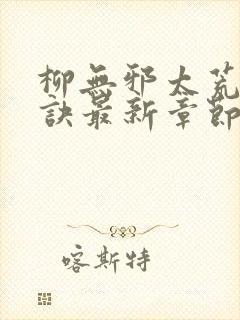 柳無邪太荒
訣最新章節
喀斯特